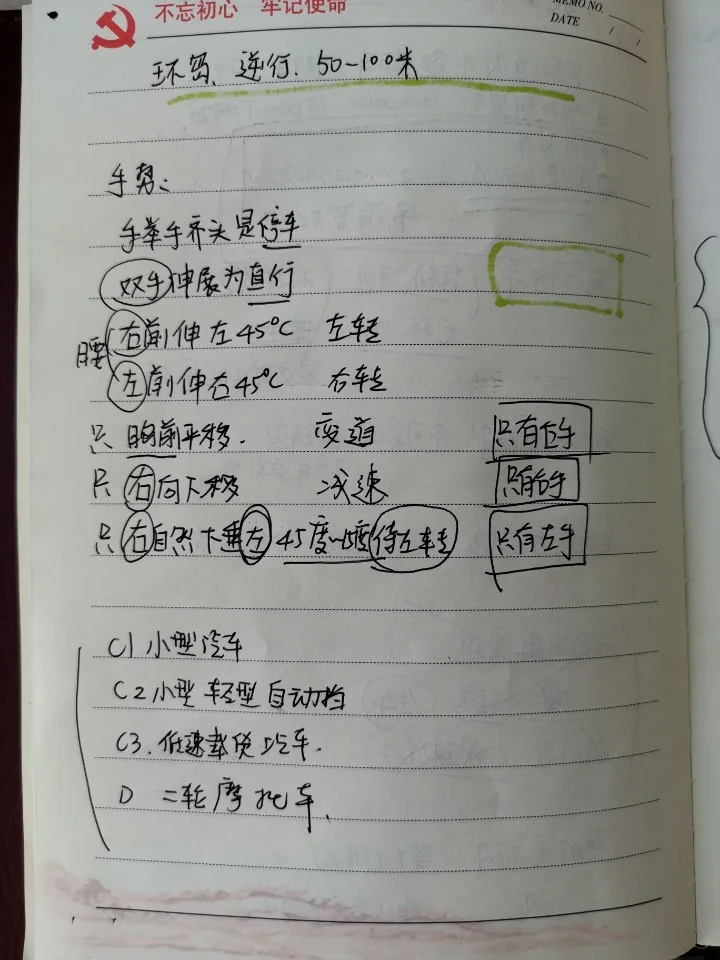 不忘初心 牢记使命
MEMO NO.
DATE / /
环岛、逆行、50-100米
手势:
手举手齐头是停车
双手伸展为直行
腰
右前伸左45°C 左转
左前伸右45°C 右转
只 胸前平移. 变道 只有右手
只 右向下移 减速 只有右手
只 右自然下垂左 45度~15度 待左转 只有左手
C1 小型汽车
C2 小型 轻型 自动挡
C3. 低速载货汽车.
D 二轮摩托车.